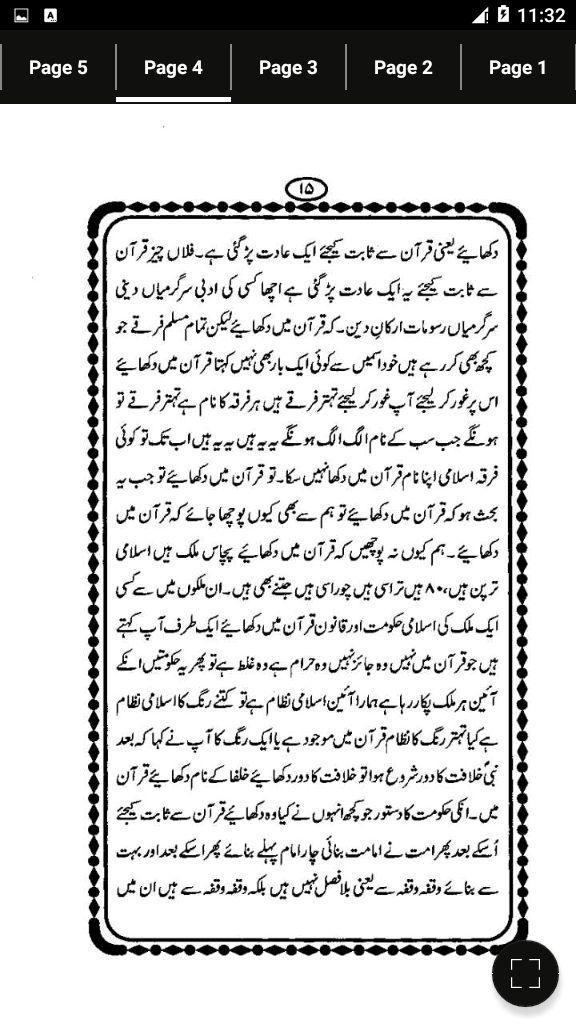 11:32
Page 5
Page 4
Page 3
Page 2
Page 1
۱۵
دکھائیے یعنی قرآن سے ثابت کیجئے ایک عادت پڑ گئی ہے۔ فلاں چیز قرآن
سے ثابت کیجئے یہ ایک عادت پڑ گئی ہے اچھا کسی کی ادبی سرگرمیاں دینی
سرگرمیاں رسومات ارکانِ دین۔ کہ قرآن میں دکھائیے لیکن تمام مسلم فرقے جو
کچھ بھی کر رہے ہیں خود اسمیں سے کوئی ایک بار بھی نہیں کہتا قرآن میں دکھائیے
اس پر غور کر لیجئے آپ غور کر لیجئے تہتر فرقے ہیں ہر فرقہ کا نام ہے تہتر فرقے تو
ہونگے جب سب کے نام الگ الگ ہونگے یہ یہ ہیں یہ یہ ہیں اب تک تو کوئی
فرقہ اسلامی اپنا نام قرآن میں دکھا نہیں سکا۔ تو قرآن میں دکھائیے تو جب یہ
بحث ہو کہ قرآن میں دکھائیے تو ہم سے بھی کیوں پوچھا جائے کہ قرآن میں
دکھائیے۔ ہم کیوں نہ پوچھیں کہ قرآن میں دکھائیے پچاس ملک ہیں اسلامی
ترپن ہیں، ۸۰ ہیں تراسی ہیں چوراسی ہیں جتنے بھی ہیں۔ ان ملکوں میں سے کسی
ایک ملک کی اسلامی حکومت اور قانون قرآن میں دکھائیے ایک طرف آپ کہتے
ہیں جو قرآن میں نہیں وہ جائز نہیں وہ حرام ہے وہ غلط ہے تو پھر یہ حکومتیں انکے
آئین ہر ملک پکار رہا ہے ہمارا آئین اسلامی نظام ہے تو کتنے رنگ کا اسلامی نظام
ہے کیا تہتر رنگ کا نظام قرآن میں موجود ہے یا ایک رنگ کا آپ نے کہا کہ بعد
نبیؐ خلافت کا دور شروع ہوا تو خلافت کا دور دکھائیے خلفا کے نام دکھائیے قرآن
میں۔ انکی حکومت کا دستور جو کچھ انہوں نے کیا وہ دکھائیے قرآن سے ثابت کیجئے
اُسکے بعد پھر امت نے امامت بنائی چار امام پہلے بنائے پھر اسکے بعد اور بہت
سے بنائے وقفہ وقفہ سے یعنی بلا فصل نہیں ہیں بلکہ وقفہ وقفہ سے ہیں ان میں